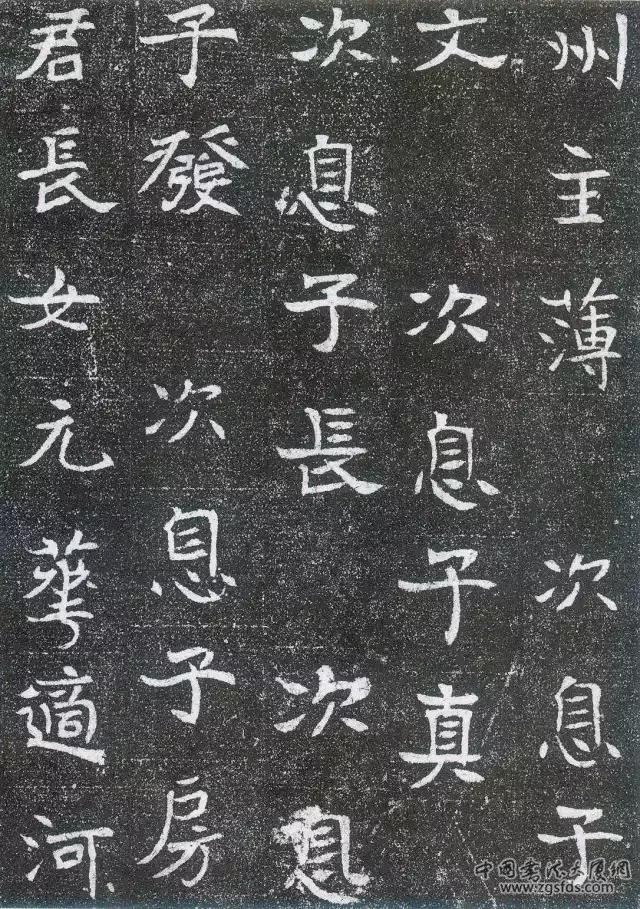 州主薄　次息子
文　次息子真
次息子長　次息
子發　次息子房
君長女元華適河
中国书法发展網
www.zgsfds.com